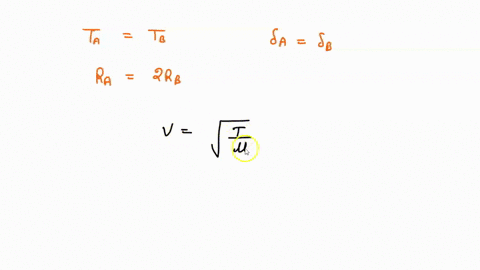 T_A = T_B δ_A = δ_B
R_A = 2R_B
v = √(T/μ)